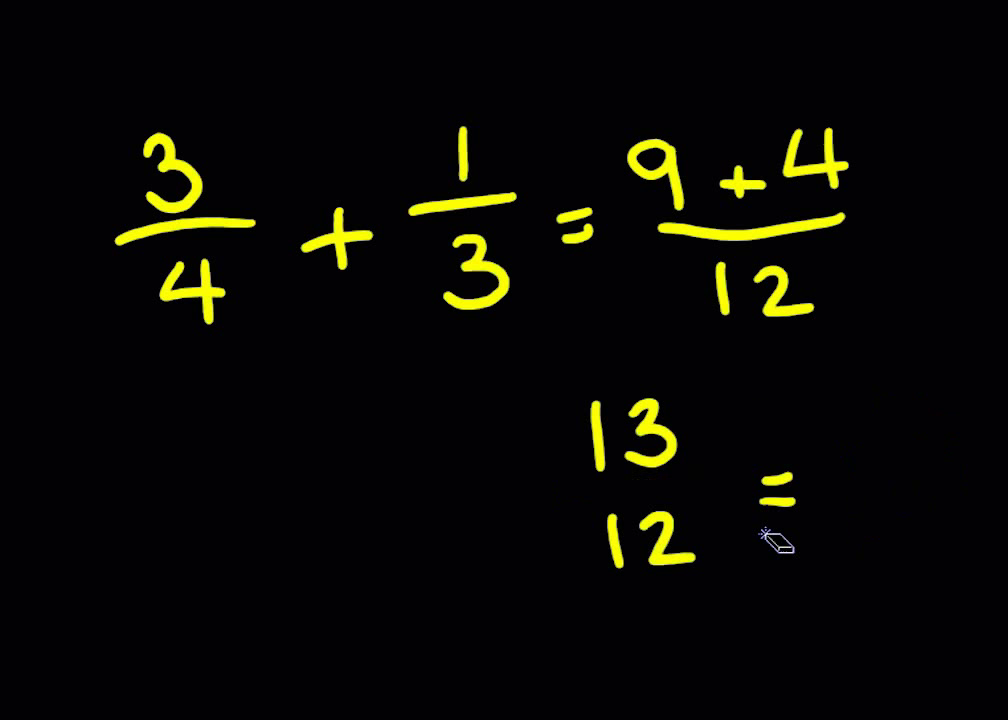 3/4 + 1/3 = (9 + 4)/12
13
12 =